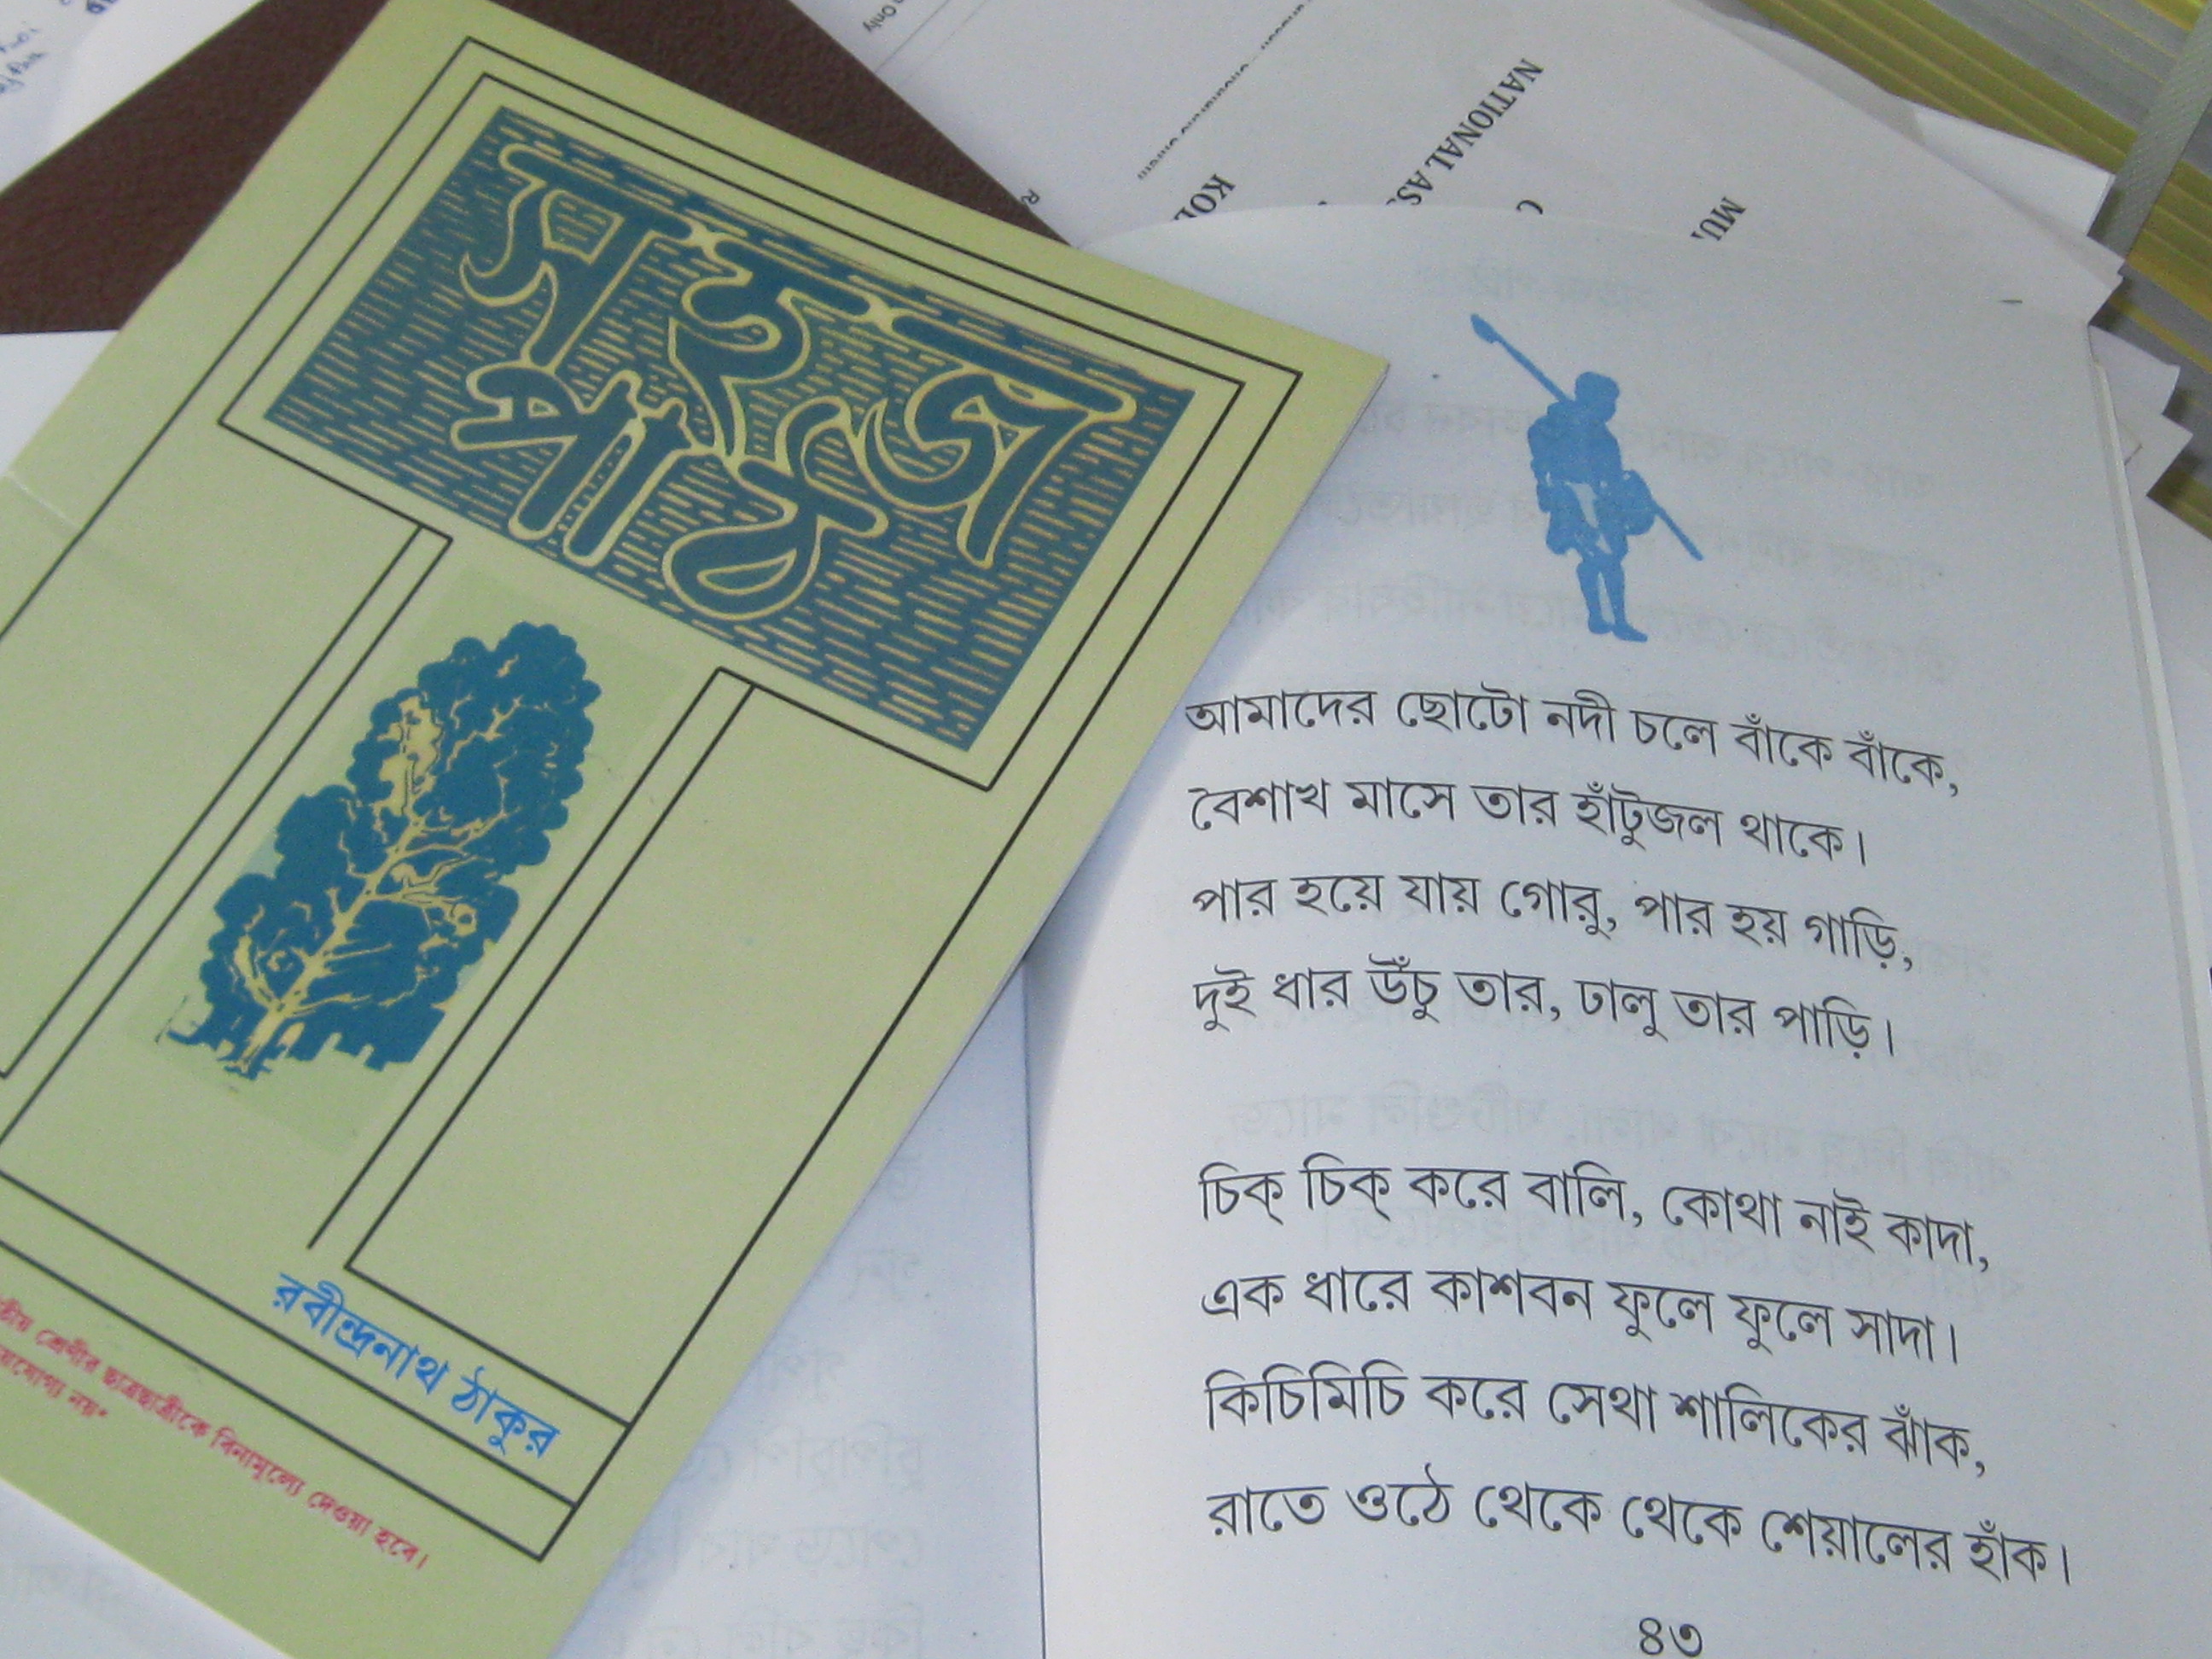 সহজ
পাঠ
রবীন্দ্রনাথ ঠাকুর
শ্রেণীর ছাত্রছাত্রীকে বিনামূল্যে দেওয়া হবে।
নয়"
আমাদের ছোটো নদী চলে বাঁকে বাঁকে,
বৈশাখ মাসে তার হাঁটুজল থাকে।
পার হয়ে যায় গোরু, পার হয় গাড়ি,
দুই ধার উঁচু তার, ঢালু তার পাড়ি।
চিক্ চিক্ করে বালি, কোথা নাই কাদা,
এক ধারে কাশবন ফুলে ফুলে সাদা।
কিচিমিচি করে সেথা শালিকের ঝাঁক,
রাতে ওঠে থেকে থেকে শেয়ালের হাঁক।
৪৩
NATIONAL
Only